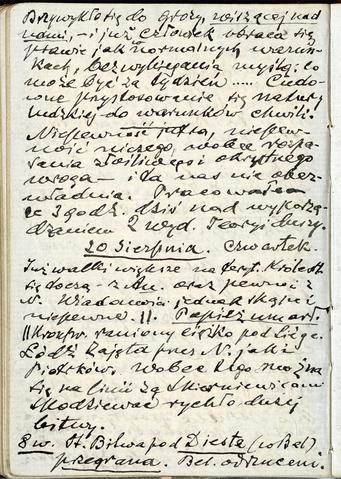 Przywykło się do grozy, wiszącej nad
nami, – i już człowiek obraca się
prawie jak normalnych warun-
kach, bez wybiegania myślą co
może być za tydzień .... Cudo-
wne przystosowanie się natury
ludzkiej do warunków chwili.
Niepewność jutra, niepew-
ność niczego, wobec rozpa-
sania złośliwego i okrutnego
wroga – i ta nas nie obez-
władnia. Pracowałem
ze 3 godz. dziś nad wykorzą-
dzaniem 2 wyd. Teoryi
20 Sierpnia. Czwartek.
Już walki większe na teryt. Królest.
się toczą – z Au. oraz pewnie z
N. Wiadomości jednak skąpe i
niepewne. II. Papież umarł.
II Kronprz. raniony ciężko pod Liège.
Łódź zajęta przez N. jak i
Piotrków. Wobec tego można
się na linii za Skierniewicami
spodziewać rychło dużej
bitwy.
8 w. St. Bitwa pod Diesta (w Bel).
przegrana. Bel. odrzuceni.